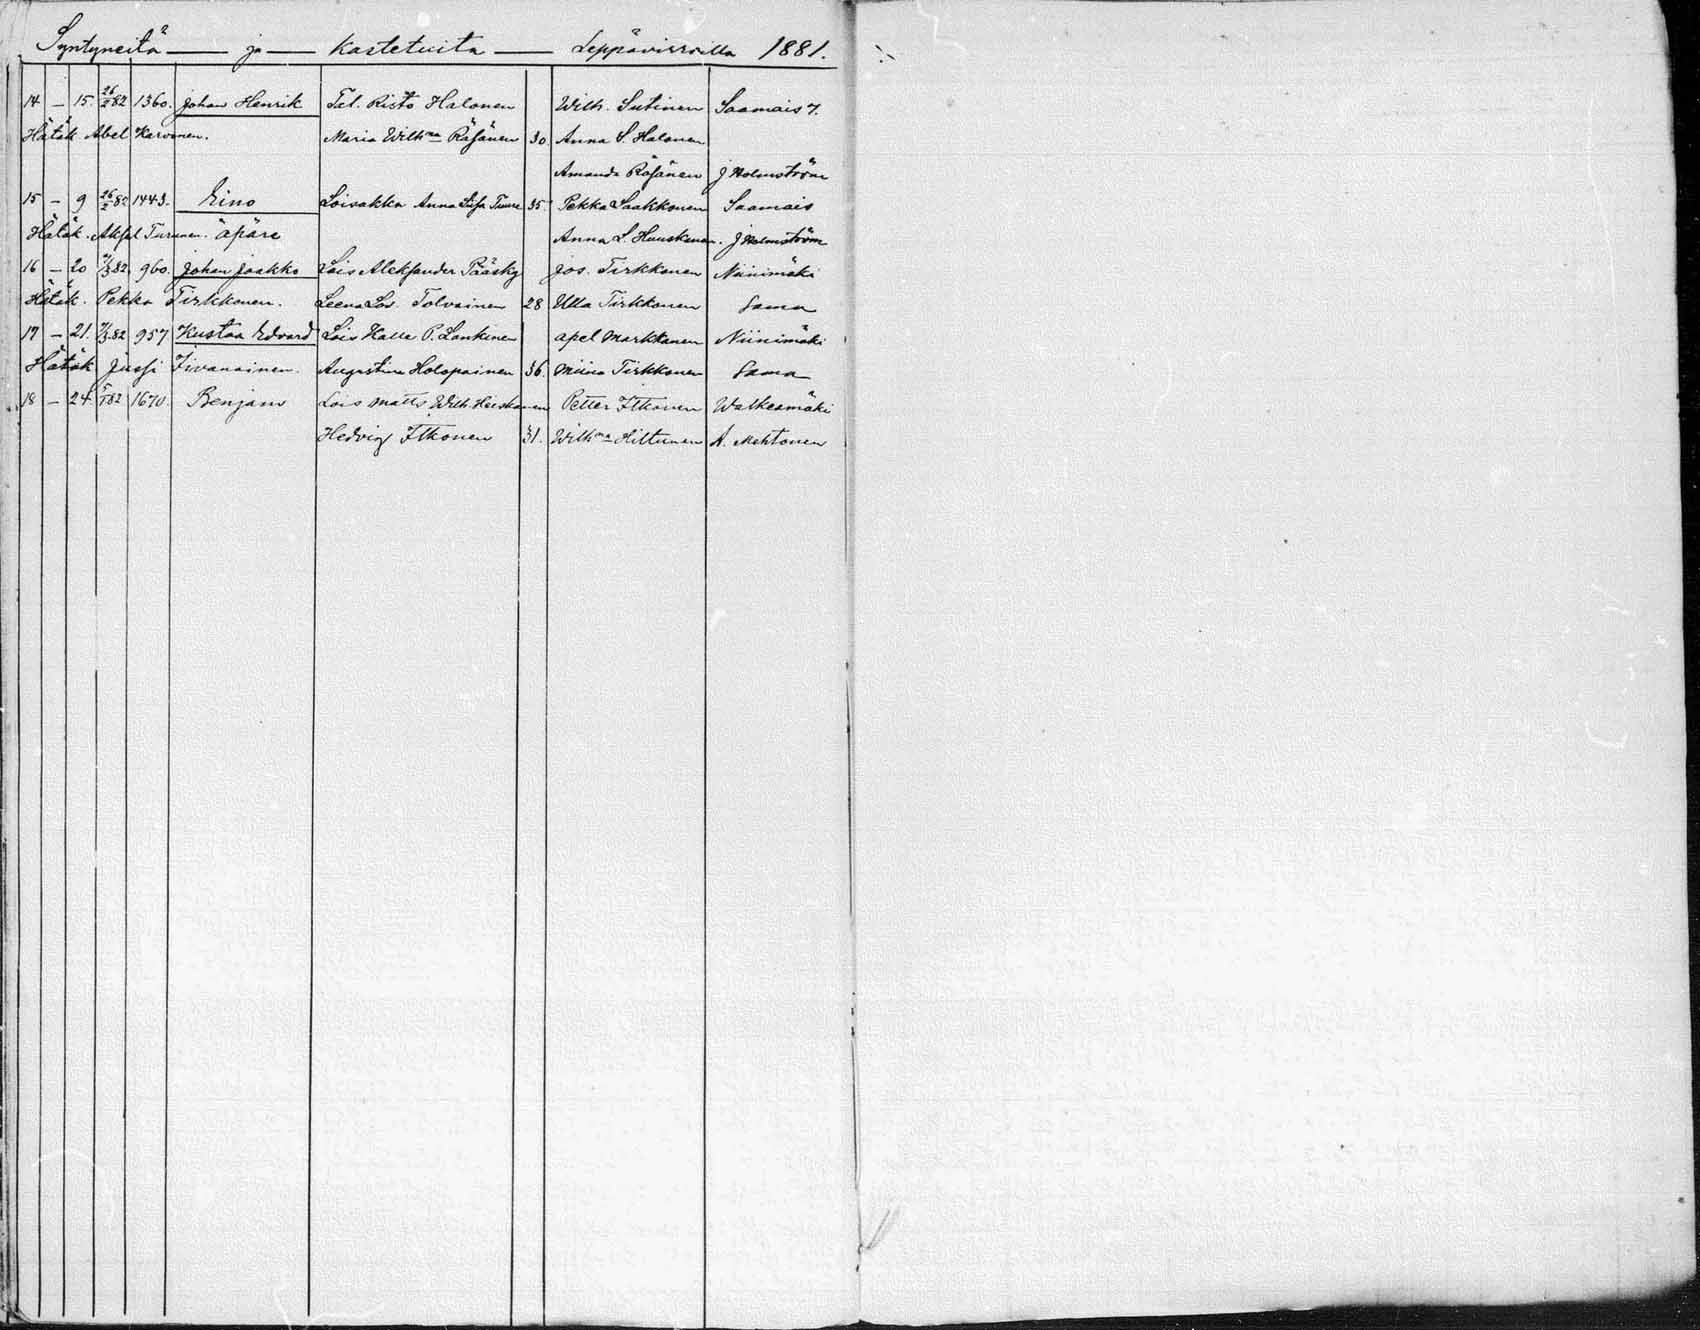 Syntyneitä — ja — kastetuita — Leppävirroilla 1881.
14 — 15. 26/2 82 1360. Johan Henrik Tel. Risto Halonen Wilh. Sutinen Saamais 7.
Hätäk Abel Karvonen. Maria Wilhna Räsänen 30. Anna S. Halonen
Amanda Räsänen J Holmström
15 — 9 26/2 82 1443. Eino Loisakka Anna Liisa Tuure 35. Pekka Laakkonen Saamais
Hätäk. Aksel Turunen. äpäre Anna L. Huuskonen. J Holmström
16 — 20 /3 82. 960. Johan Jaakko Lois Aleksander Pääsky Jos. Tirkkonen Niinimäki
Hätäk. Pekka Tirkkonen. Leena Lov. Tolvainen 28 Ulla Tirkkonen Sama
17 — 21. /3 82 957 Kustaa Edvard Lois Kalle P. Lankinen Apel Markkanen Niinimäki
Hätäk Jussi Iivanainen. Augustina Holopainen 36. Miina Tirkkonen Sama
18 — 24. /1 82 1670. Benjam Lois Matts Wilh Heiskanen Petter Itkonen Walkeamäki
Hedvig Itkonen 31. Wilhna Hiltunen A. Mehtonen